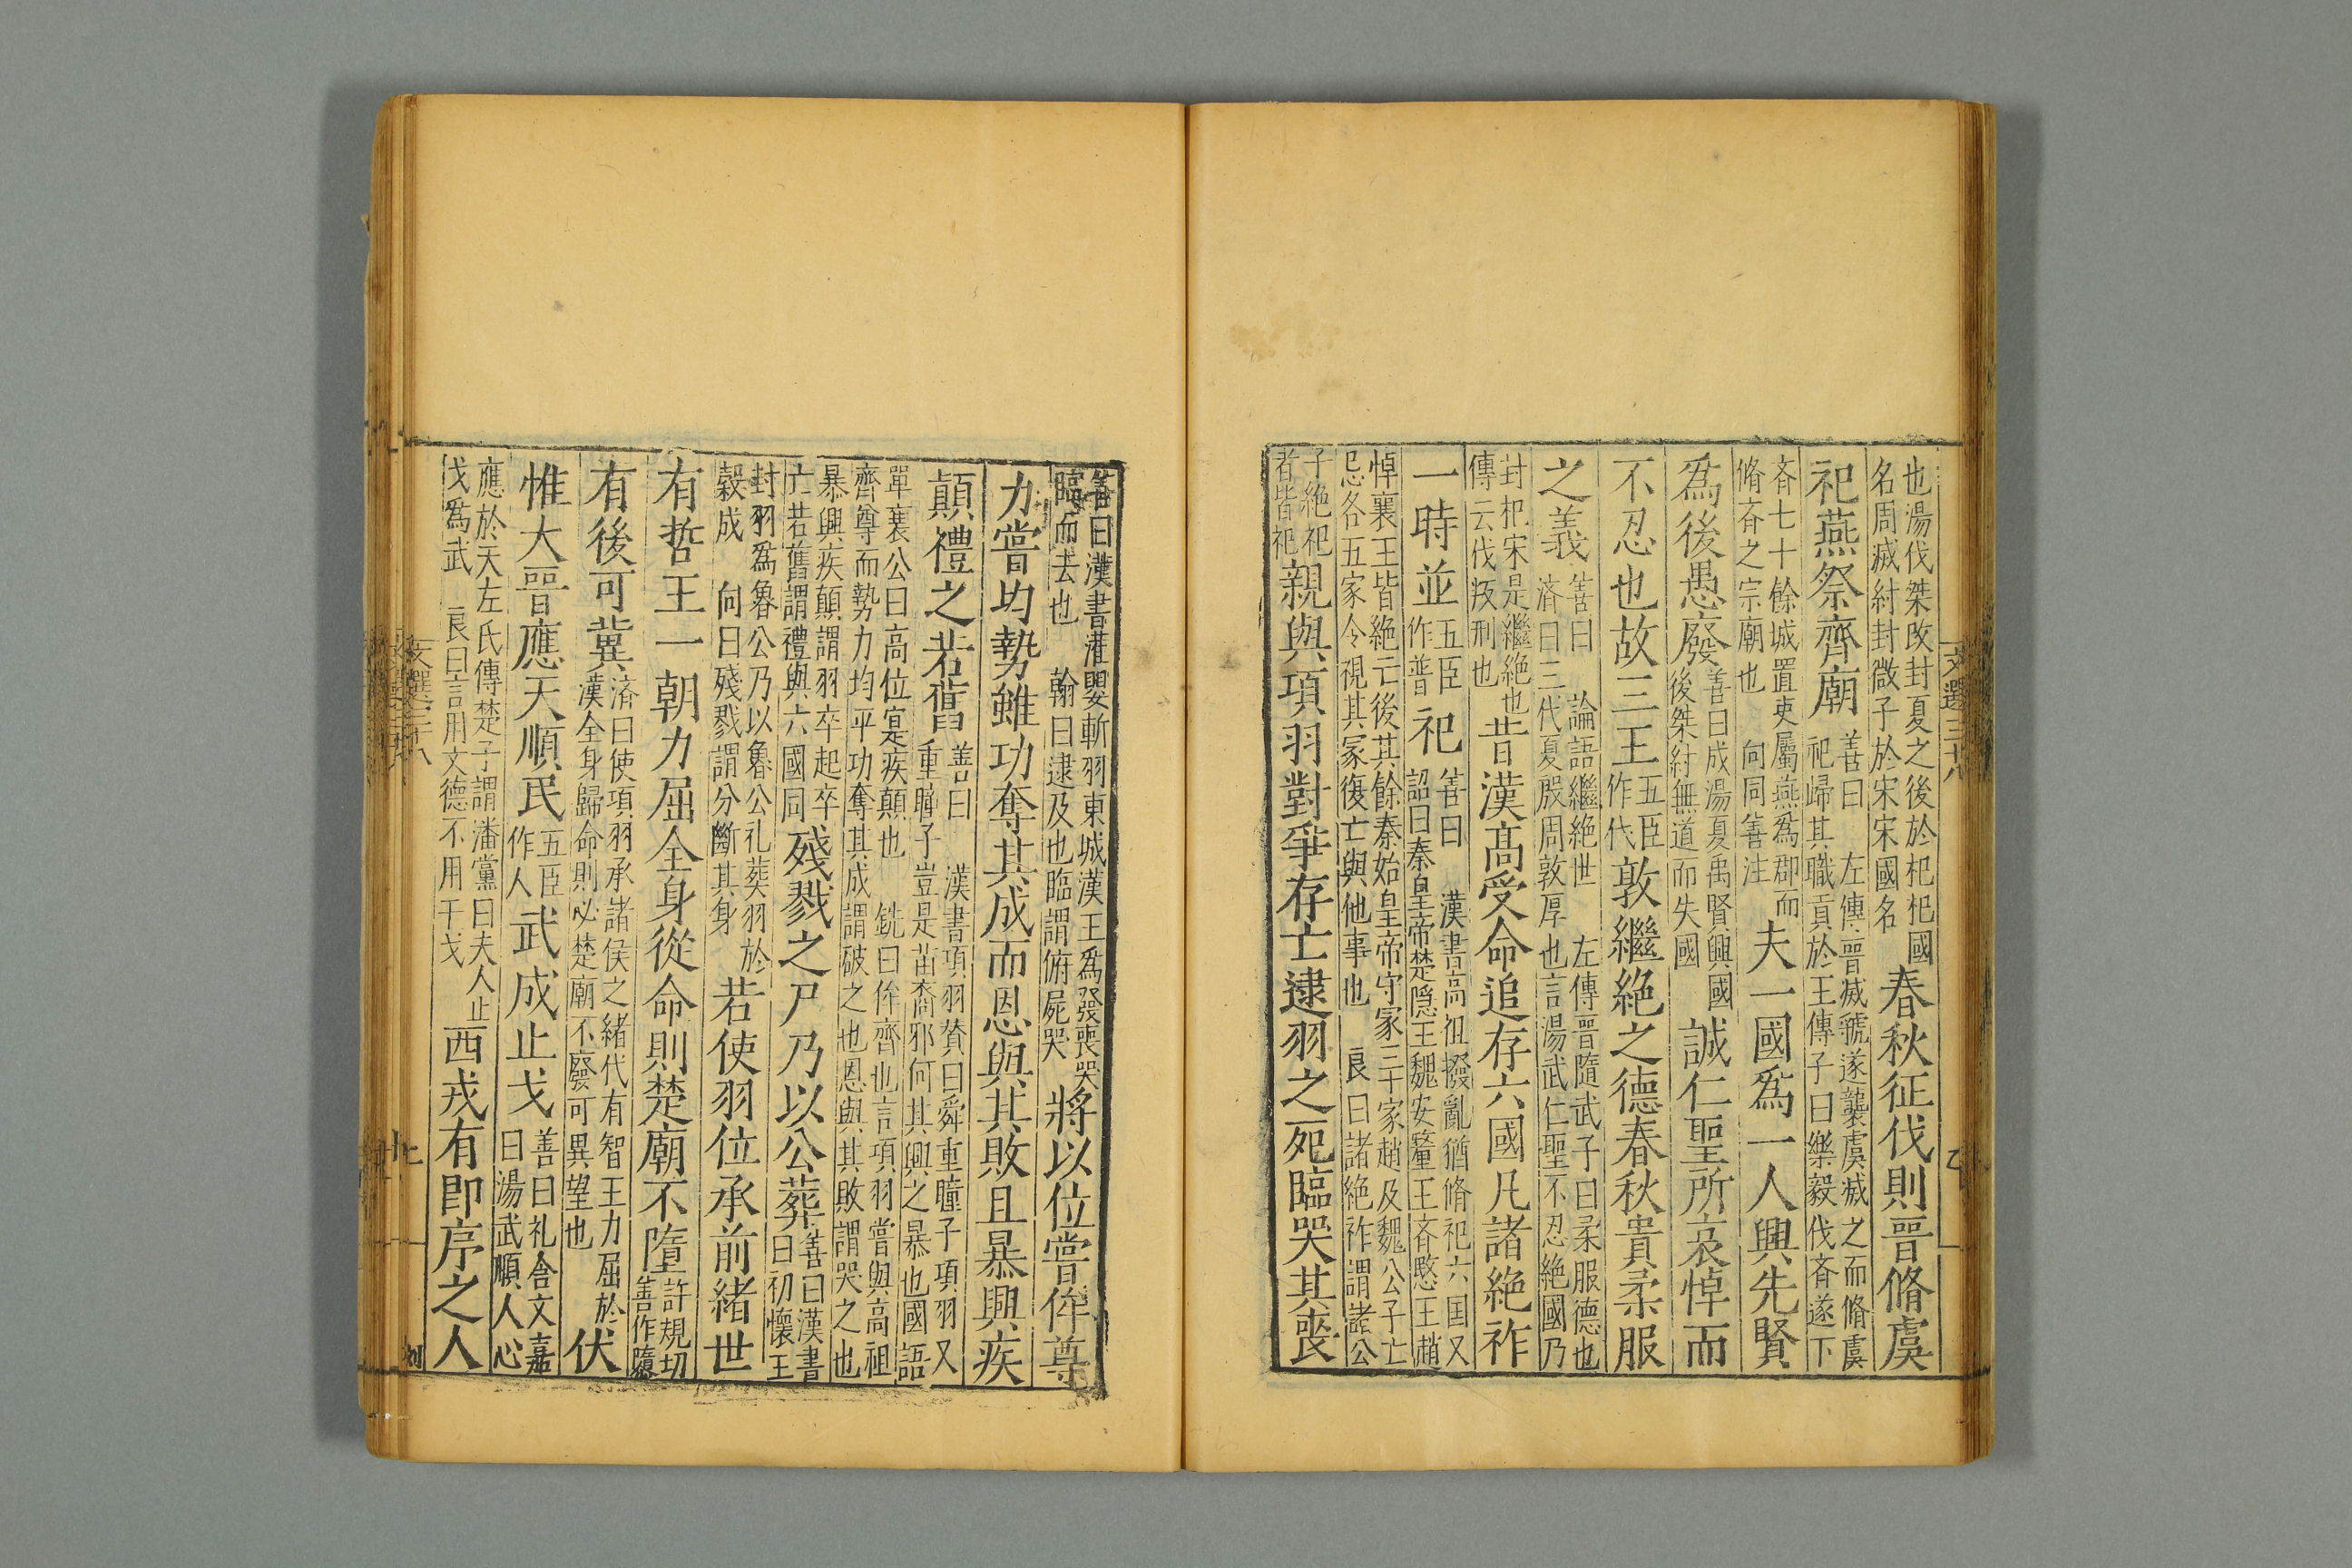 也湯伐桀改封夏之後於杞杞國
名周滅紂封微子於宋宋國名
春秋征伐則晉脩虞
祀燕祭齊廟
善曰左傳晉滅虢遂襲虞滅之而脩虞
祀歸其職貢於王傳子曰樂毅伐斉遂下
斉七十餘城置吏屬燕爲郡而
脩斉之宗廟也向同善注
夫一國爲一人興先賢
爲後愚廢
善曰成湯夏禹賢興國
後桀紂無道而失國
誠仁聖所哀悼而
不忍也故三王
五臣
作代
敦繼絶之德春秋貴柔服
之義
善曰論語繼絶世左傳晉隨武子曰柔服德也
濟曰三代夏殷周敦厚也言湯武仁聖不忍絶國乃
封杞宋是繼絶也
傳云伐叛刑也
昔漢髙受命追存六國凡諸絶祚
一時並
五臣
作普
祀
善曰漢書高祖撥亂猶脩祀六国又
詔曰秦皇帝楚隠王魏安釐王斉愍王趙
悼襄王皆絶亡後其餘秦始皇帝守冢三十家趙及魏公子亡
忌各五家令視其冢復亡與他事也良曰諸絶祚謂諸公
子絶祀
者皆祀
親與項羽對爭存亡逮羽之死臨哭其喪
文選三十八
善曰漢書灌嬰斬羽東城漢王爲發喪哭
臨而去也翰曰逮及也臨謂俯屍哭
將以位嘗侔尊
力嘗均勢雖功奪其成而恩與其敗且暴興疾
顛禮之若舊
善曰漢書項羽賛曰舜重瞳子項羽又
重瞳子豈是苗裔邪何其興之暴也國語
單襄公曰高位寔疾顛也銑曰侔齊也言項羽嘗與高祖
齊尊而勢力均平功奪其成謂破之也恩與其敗謂哭之也
暴興疾顛謂羽卒起卒
亡若舊謂禮與六國同
殘戮之尸乃以公葬
善曰漢書
曰初懷王
封羽爲魯公乃以魯公礼葬羽於
穀成向曰殘戮謂分斷其身
若使羽位承前緒世
有哲王一朝力屈全身從命則楚廟不隳
許規切
善作隳
有後可冀
済曰使項羽承諸侯之緒代有智王力屈於
漢全身歸命則必楚廟不廢可異望也
伏
惟大晉應天順民
五臣
作人
武成止戈
善曰礼含文嘉
曰湯武順人心
應於天左氏傳楚子謂潘黨曰夫人止
戈爲武良曰言用文德不用干戈
西戎有即序之人
文選三十八